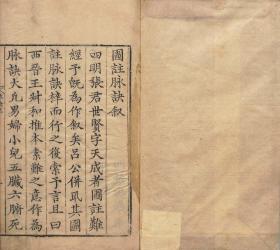 圖註脉訣叙
四明張君世賢字天成者圖註難
經予旣為作叙矣呂公併取其圖
註脉訣梓而行之復索予言且曰
西晉王叔和推本素難之意作為
脉訣大凡男婦小兒五臟六腑死